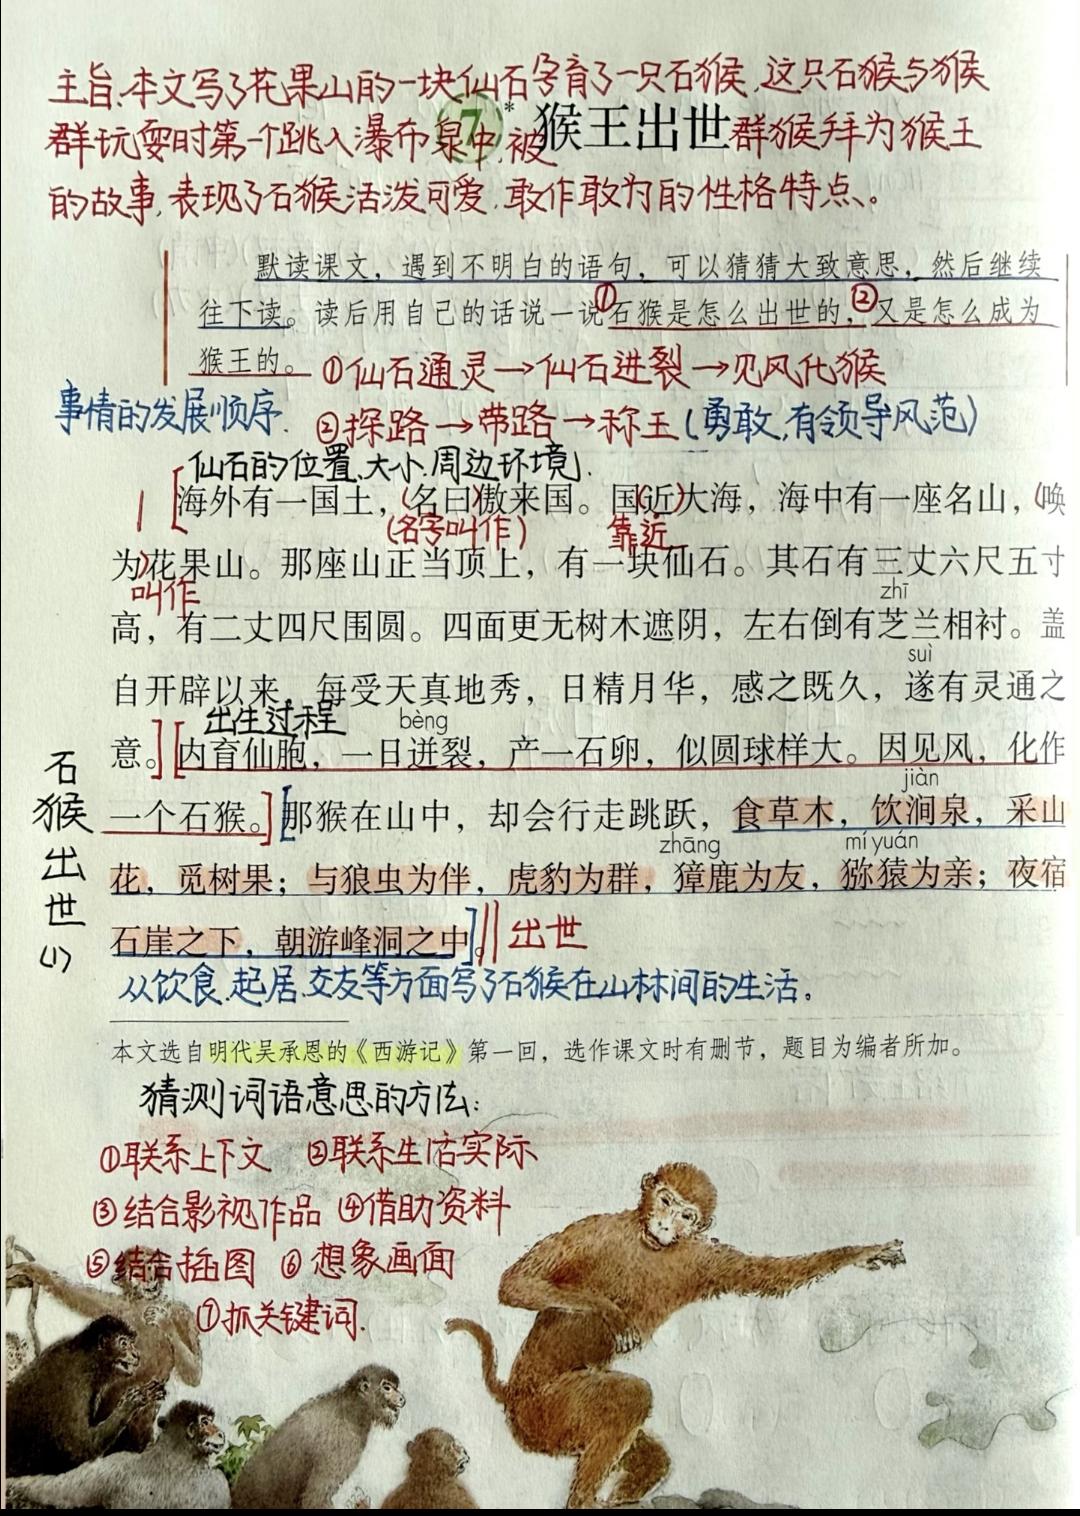 主旨:本文写了花果山的一块仙石孕育了一只石猴,这只石猴与猴
群玩耍时第一个跳入瀑布泉中,被群猴拜为猴王
7* 猴王出世
的故事,表现了石猴活泼可爱,敢作敢为的性格特点。
默读课文，遇到不明白的语句，可以猜猜大致意思，然后继续
往下读。读后用自己的话说一说①石猴是怎么出世的，②又是怎么成为
猴王的。
①仙石通灵→仙石迸裂→见风化猴
事情的发展顺序.
②探路→带路→称王(勇敢,有领导风范)
仙石的位置.大小.周边环境.
海外有一国土，(名曰)傲来国。国(近)大海，海中有一座名山，(唤
(名字叫作) 靠近
为)花果山。那座山正当顶上，有一块仙石。其石有三丈六尺五寸
叫作 zhī
高，有二丈四尺围圆。四面更无树木遮阴，左右倒有芝兰相衬。盖
suì
自开辟以来，每受天真地秀，日精月华，感之既久，遂有灵通之
出生过程 bèng
意。][内育仙胞，一日迸裂，产一石卵，似圆球样大。因见风，化作
jiàn
一个石猴。][那猴在山中，却会行走跳跃，食草木，饮涧泉，采山
zhāng mí yuán
花，觅树果；与狼虫为伴，虎豹为群，獐鹿为友，猕猿为亲；夜宿
石崖之下，朝游峰洞之中]。‖出世
石猴出世(1)
从饮食.起居.交友等方面写了石猴在山林间的生活。
本文选自明代吴承恩的《西游记》第一回，选作课文时有删节，题目为编者所加。
猜测词语意思的方法:
①联系上下文 ②联系生活实际
③结合影视作品 ④借助资料
⑤结合插图 ⑥想象画面
⑦抓关键词.